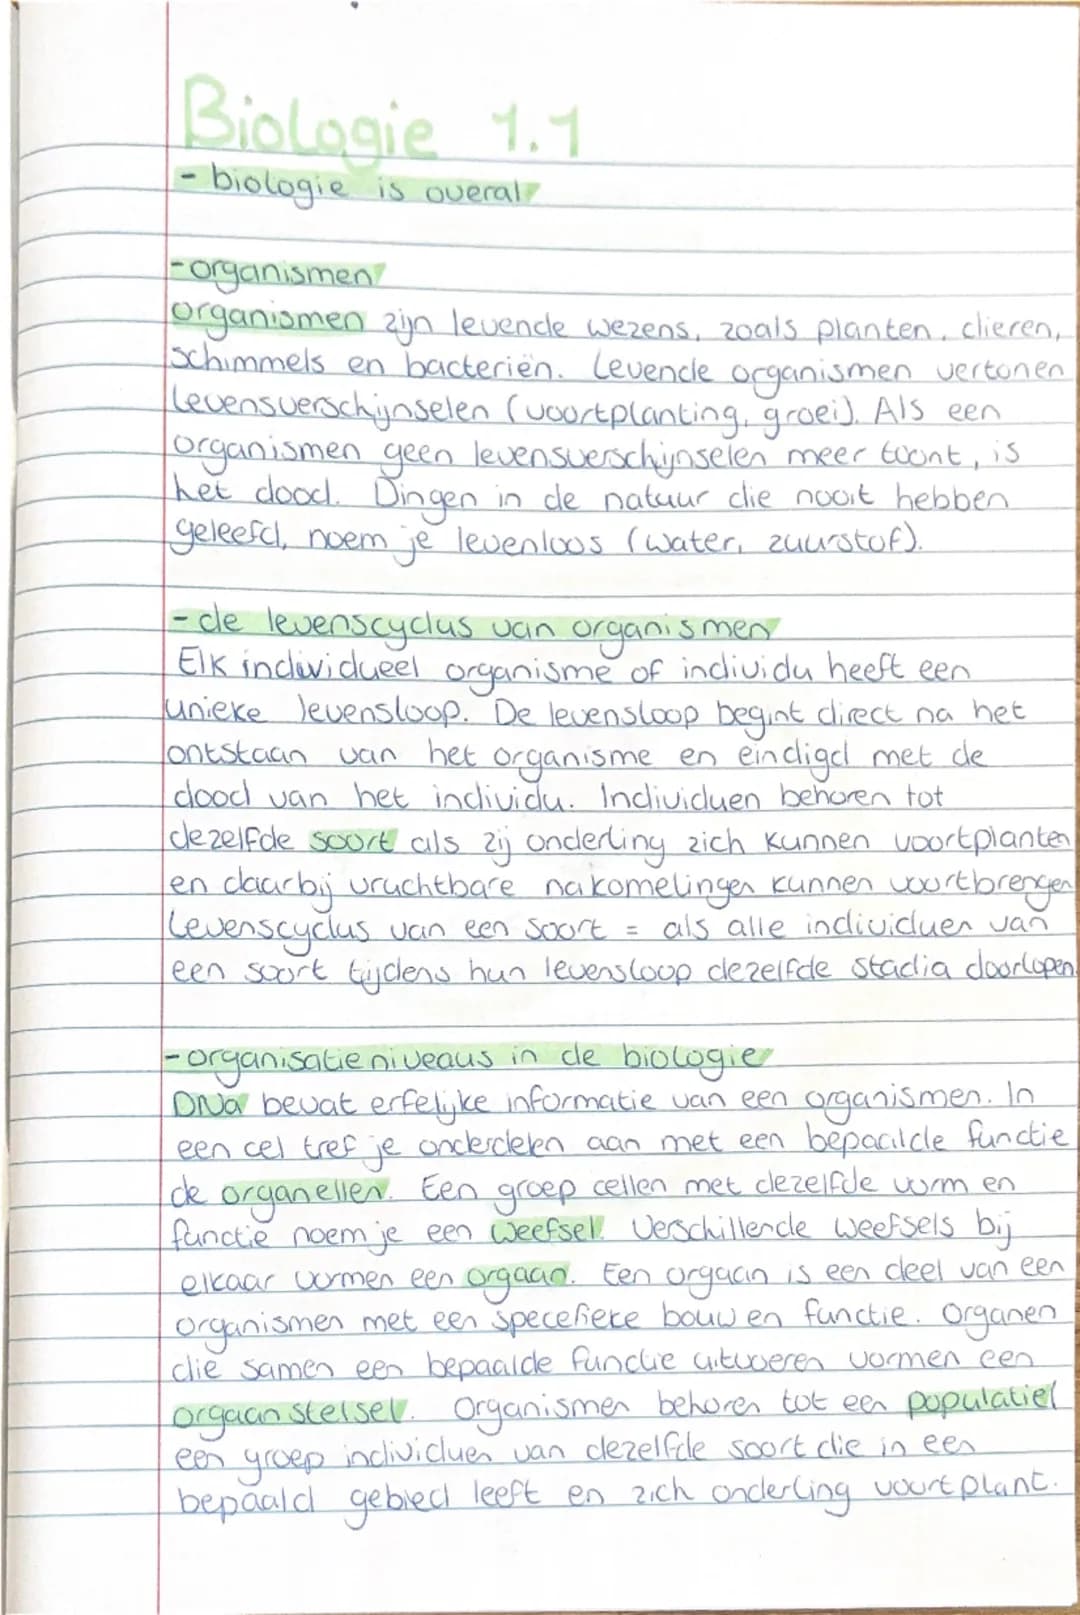 Biologie 1.1
- biologie is overal
- organismen
organismen zijn levende wezens, zoals planten, dieren,
schimmels en bacteriën. Levende organismen vertonen
levensverschijnselen (voortplanting, groei). Als een
organismen geen levensverschijnselen meer toont, is
het dood. Dingen in de natuur die nooit hebben
geleefd, noem je levenloos (water, zuurstof).
- de levenscyclus van organismen
Elk individueel organisme of individu heeft een
unieke levensloop. De levensloop begint direct na het
ontstaan van het organisme en eindigd met de
dood van het individu. Individuen behoren tot
dezelfde soort als zij onderling zich kunnen voortplanten
en daarbij vruchtbare nakomelingen kunnen voortbrengen
Levenscyclus van een soort = als alle individuen van
een soort tijdens hun levensloop dezelfde stadia doorlopen.
- organisatieniveaus in de biologie
DNA bevat erfelijke informatie van een organismen. In
een cel tref je onderdelen aan met een bepaalde functie
de organellen. Een groep cellen met dezelfde vorm en
functie noem je een weefsel. Verschillende weefsels bij
elkaar vormen een orgaan. Een orgaan is een deel van een
organismen met een specefieke bouw en functie. Organen
die samen een bepaalde functie uitvoeren vormen een
orgaanstelsel. Organismen behoren tot een populatie
een groep individuen van dezelfde soort die in een
bepaald gebied leeft en zich onderling voortplant.